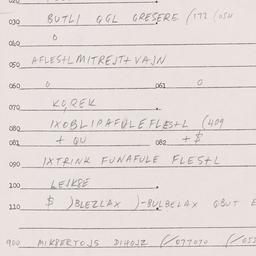 020
030 BUTLI GGL GRESERE (172 (054
040 0
050 AFLESTLMITREJTTVAJN
060 0 061 0
070 KO,REK
080 IXOBLIPAFULEFLESTL (409
081 + QU 082 + $
090 IXTRINK FUNAFULE FLESTL
100 LEIKSE
110 $ )BLEZLAX )-BULBELAX GBUT E
900 MIKBERTOJS DIHOJZ (/077070 (/052